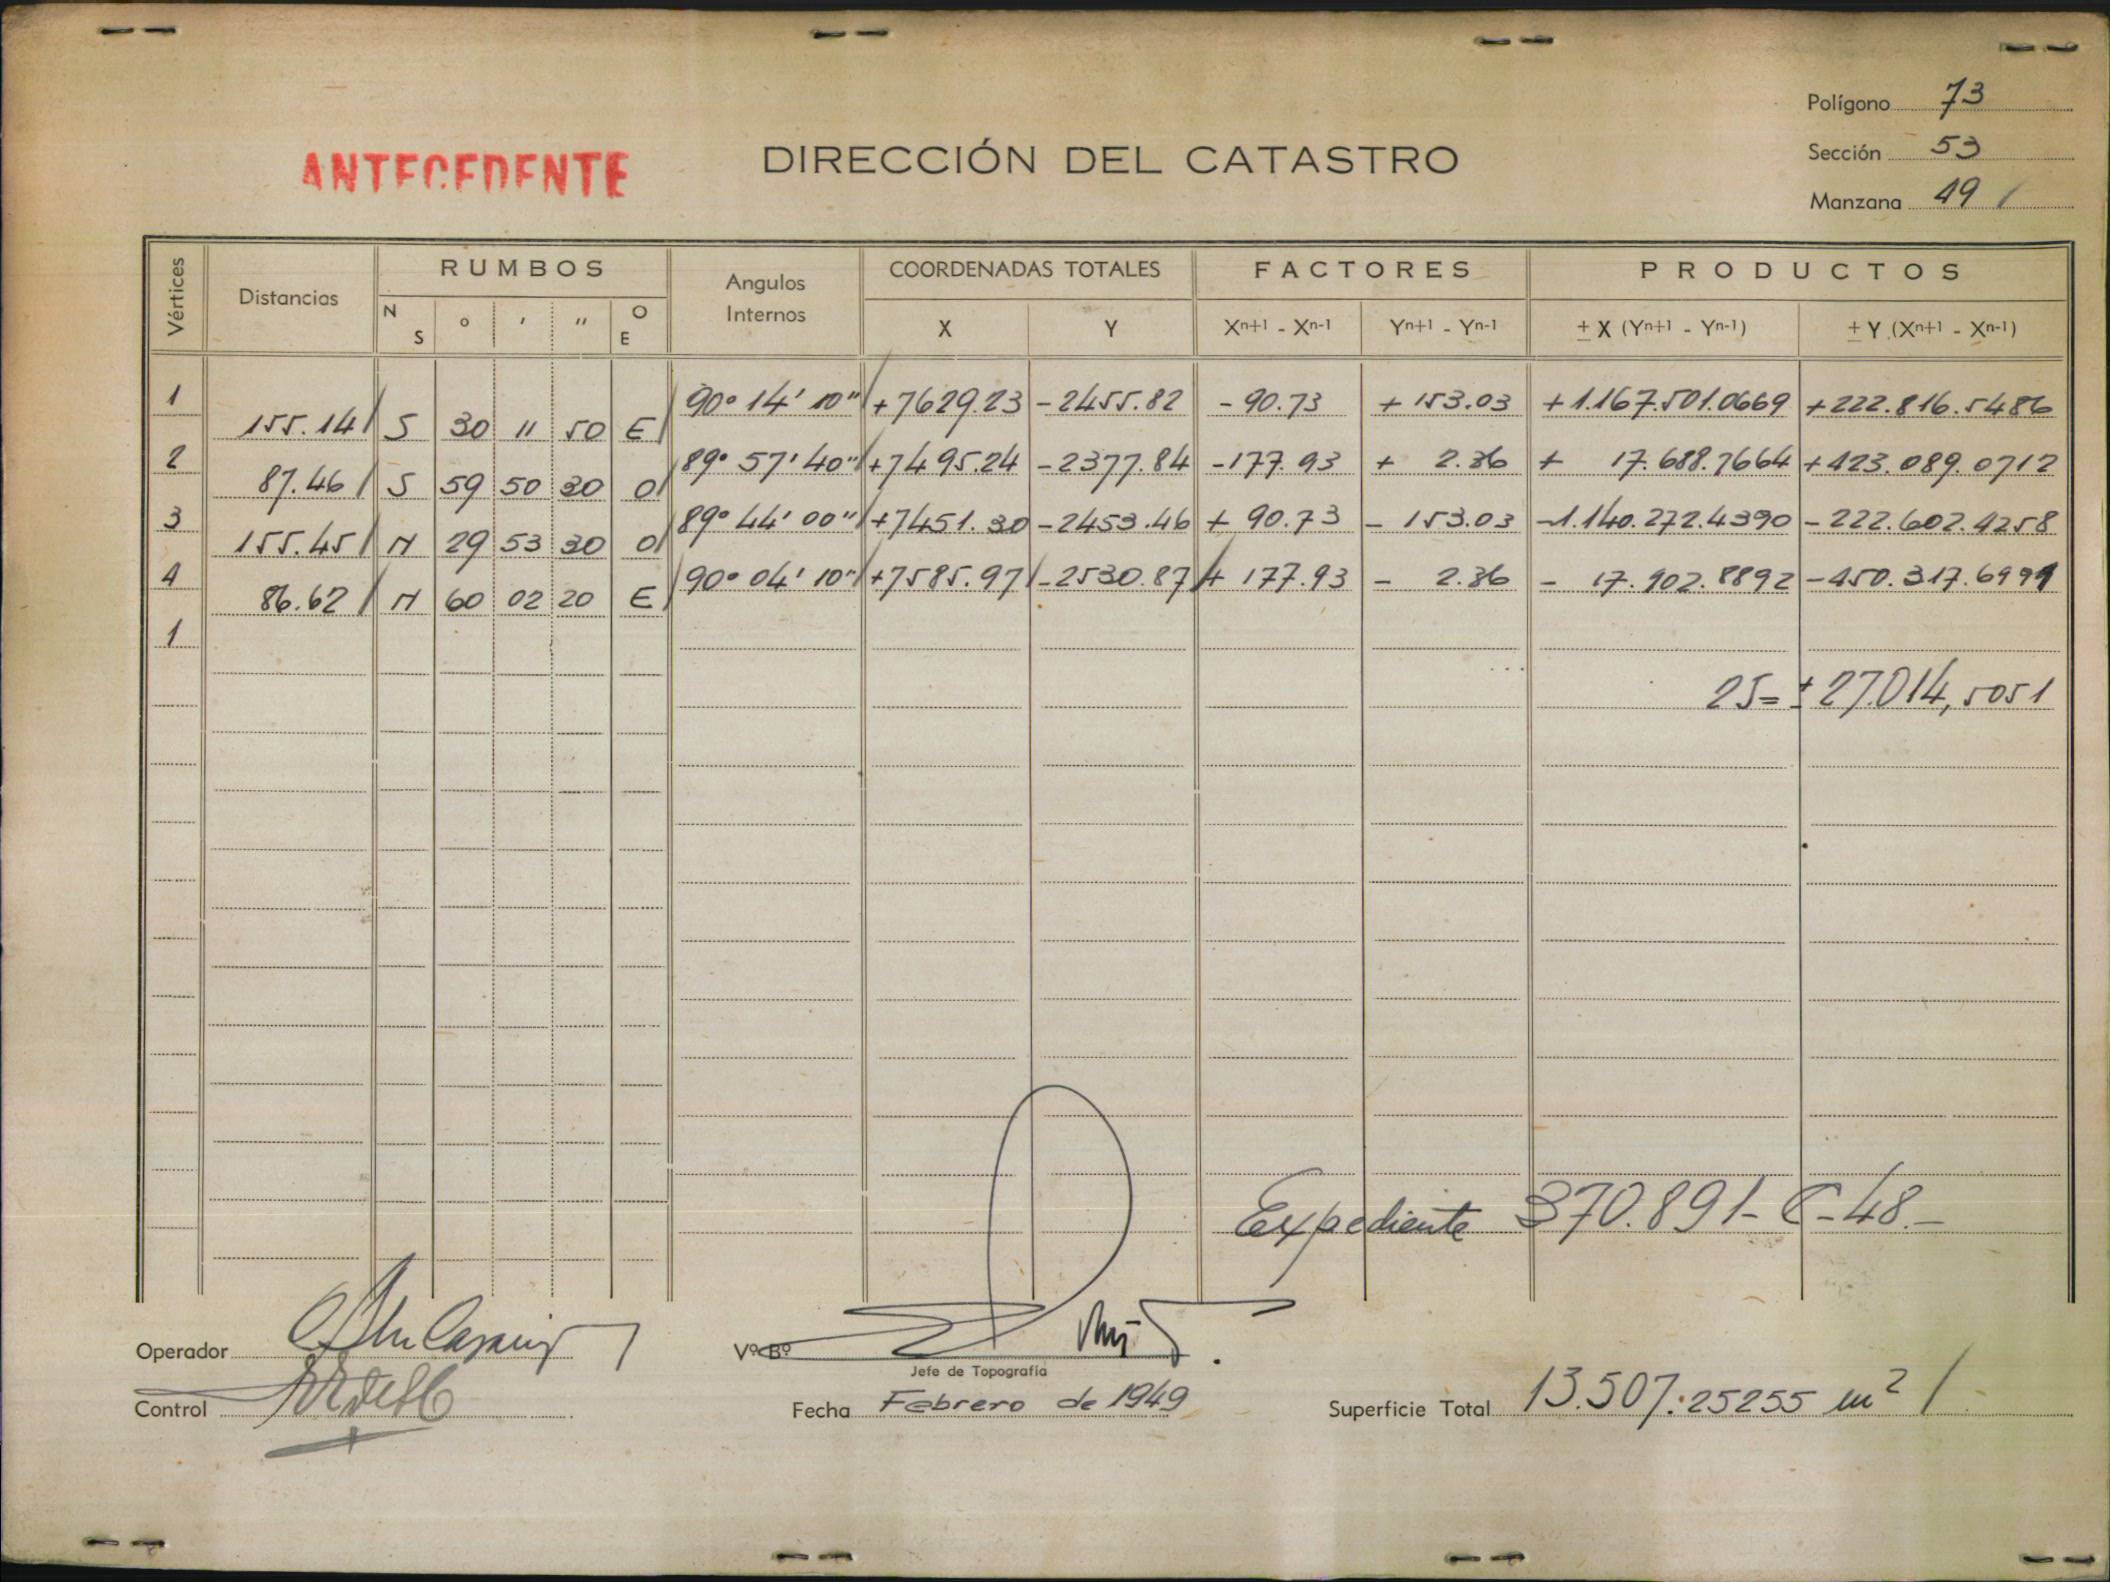 Polígono 73
ANTECEDENTE
DIRECCIÓN DEL CATASTRO
Sección 53
Manzana 49 /
Vértices Distancias RUMBOS Angulos Internos COORDENADAS TOTALES FACTORES PRODUCTOS
N S ° ' " O E X Y Xn+1 - Xn-1 Yn+1 - Yn-1 ± X (Yn+1 - Yn-1) ± Y (Xn+1 - Xn-1)
1 90° 14' 10" / +7629.23 -2455.82 -90.73 +153.03 +1.167.501.0669 +222.816.5486
155.14 / S 30 11 50 E /
2 89° 57' 40" / +7495.24 -2377.84 -177.93 + 2.36 + 17.688.7664 +423.089.0712
87.46 / S 59 50 30 O /
3 89° 44' 00" / +7451.30 -2453.46 + 90.73 - 153.03 -1.140.272.4390 -222.602.4258
155.45 / N 29 53 30 O /
4 90° 04' 10" / +7585.97 / -2530.87 / + 177.93 - 2.36 - 17.902.8892 -450.317.6991
86.62 / N 60 02 20 E /
1
2S= ± 27.014,5051
Expediente 370.891-C-48.-
Operador
Vº Bº
Jefe de Topografía
Control
Fecha Febrero de 1949
Superficie Total 13.507.25255 m² /